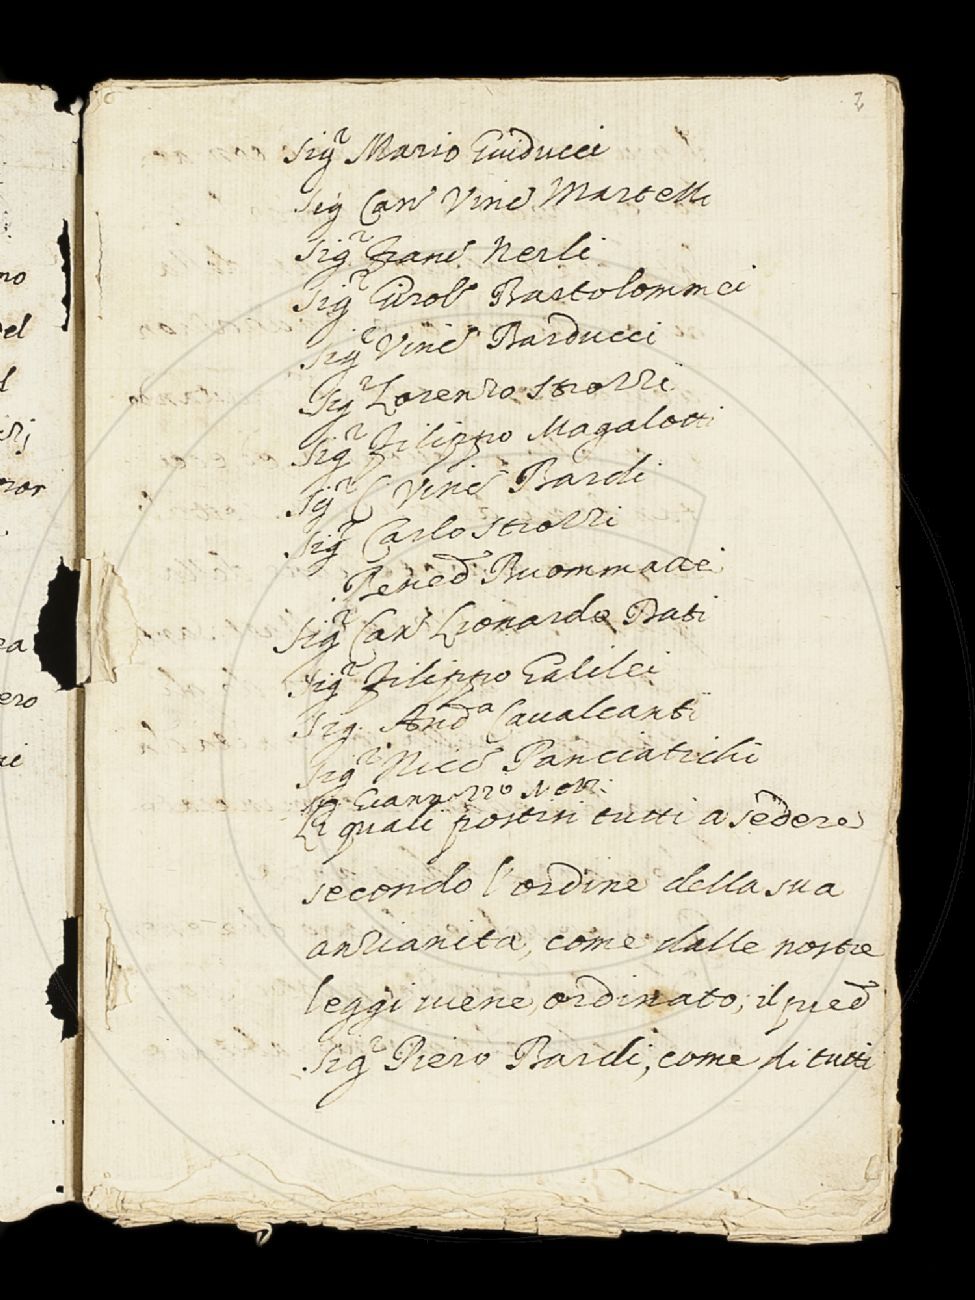 2
Sig.r Mario Guiducci
Sig Can.o Vinc.o Martelli
Sig.r Franc.o Nerli
Sig.r Girol.o Bartolommei
Sig.r Vinc.o Barducci
Sig.r Lorenzo Strozzi
Sig.r Filippo Magalotti
Sig.r C. Vinc.o Bardi
Sig.r Carlo Strozzi
Bened.o Buommattei
Sig.r Can.o Lionardo Dati
Sig.r Filippo Galilei
Sig. And.a Caualcanti
Sig.r Nicc.o Panciatichi
Li quali postisi tutti a sedere
secondo l'ordine della sua
anzianita, come dalle nostre
leggi uiene, ordinato, il pred.o
Sig.r Piero Bardi, come di tutti